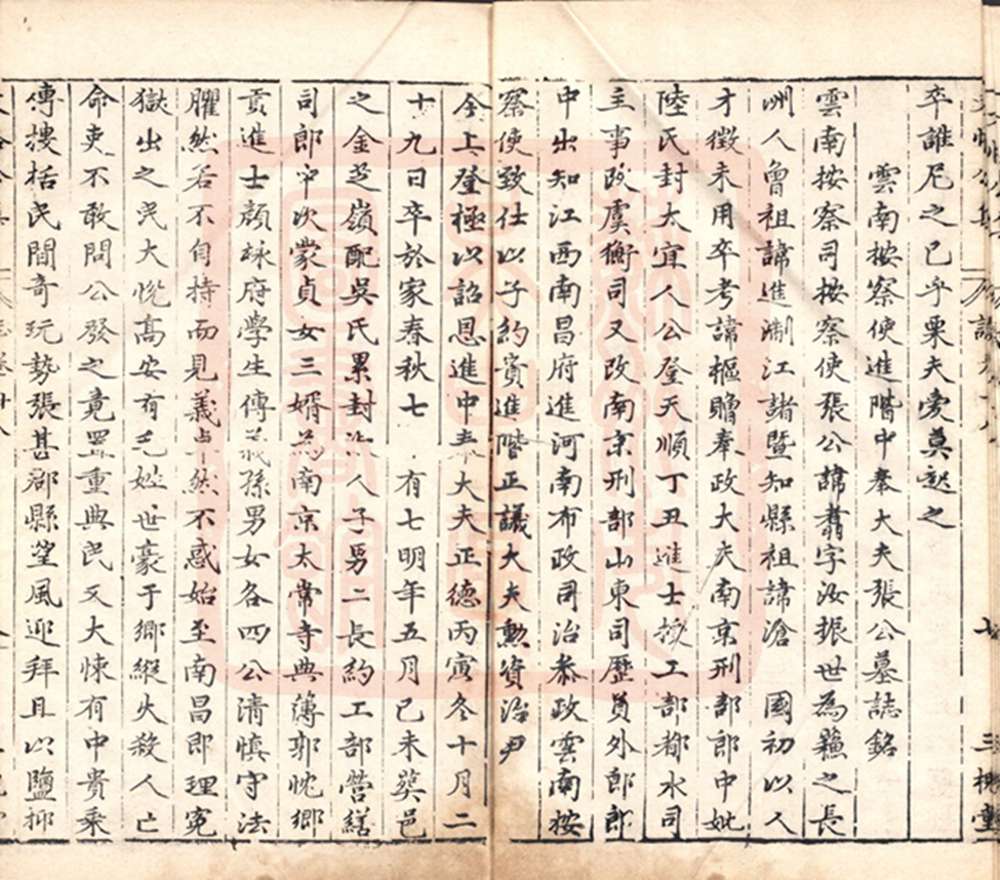 卒誰尼之已乎栗夫愛莫起之
雲南按察使進階中奉大夫張公墓誌銘
雲南按察司按察使張公諱翥字汝振世為蘇之長
洲人曾祖諱進浙江諸暨知縣祖諱滄 國初以人
才徵未用卒考諱樞贈奉政大夫南京刑部郎中妣
陸氏封太宜人公登天順丁丑進士授工部都水司
主事改虞衡司又改南京刑部山東司歷員外郎郎
中出知江西南昌府進河南布政司治參政雲南按
察使致仕以子約貴進階正議大夫勳資治尹
今上登極以詔恩進中奉大夫正德丙寅冬十月二
十九日卒於家春秋七 有七明年五月己未葬邑
之金芝嶺配吳氏累封人子男二長約工部營繕
司郎中次蒙貞女三婿為南京太常寺典簿郭忱鄉
貢進士顏棶府學生傅義孫男女各四公清慎守法
臞然若不自持而見義卓然不惑始至南昌即理冤
獄出之民大悅高安有 姓世豪于鄉縱火殺人亡
命吏不敢問公發之竟寘重典民又大悚有中貴乘
傳摟括民間奇玩勢張甚郡縣望風迎拜且以鹽抑